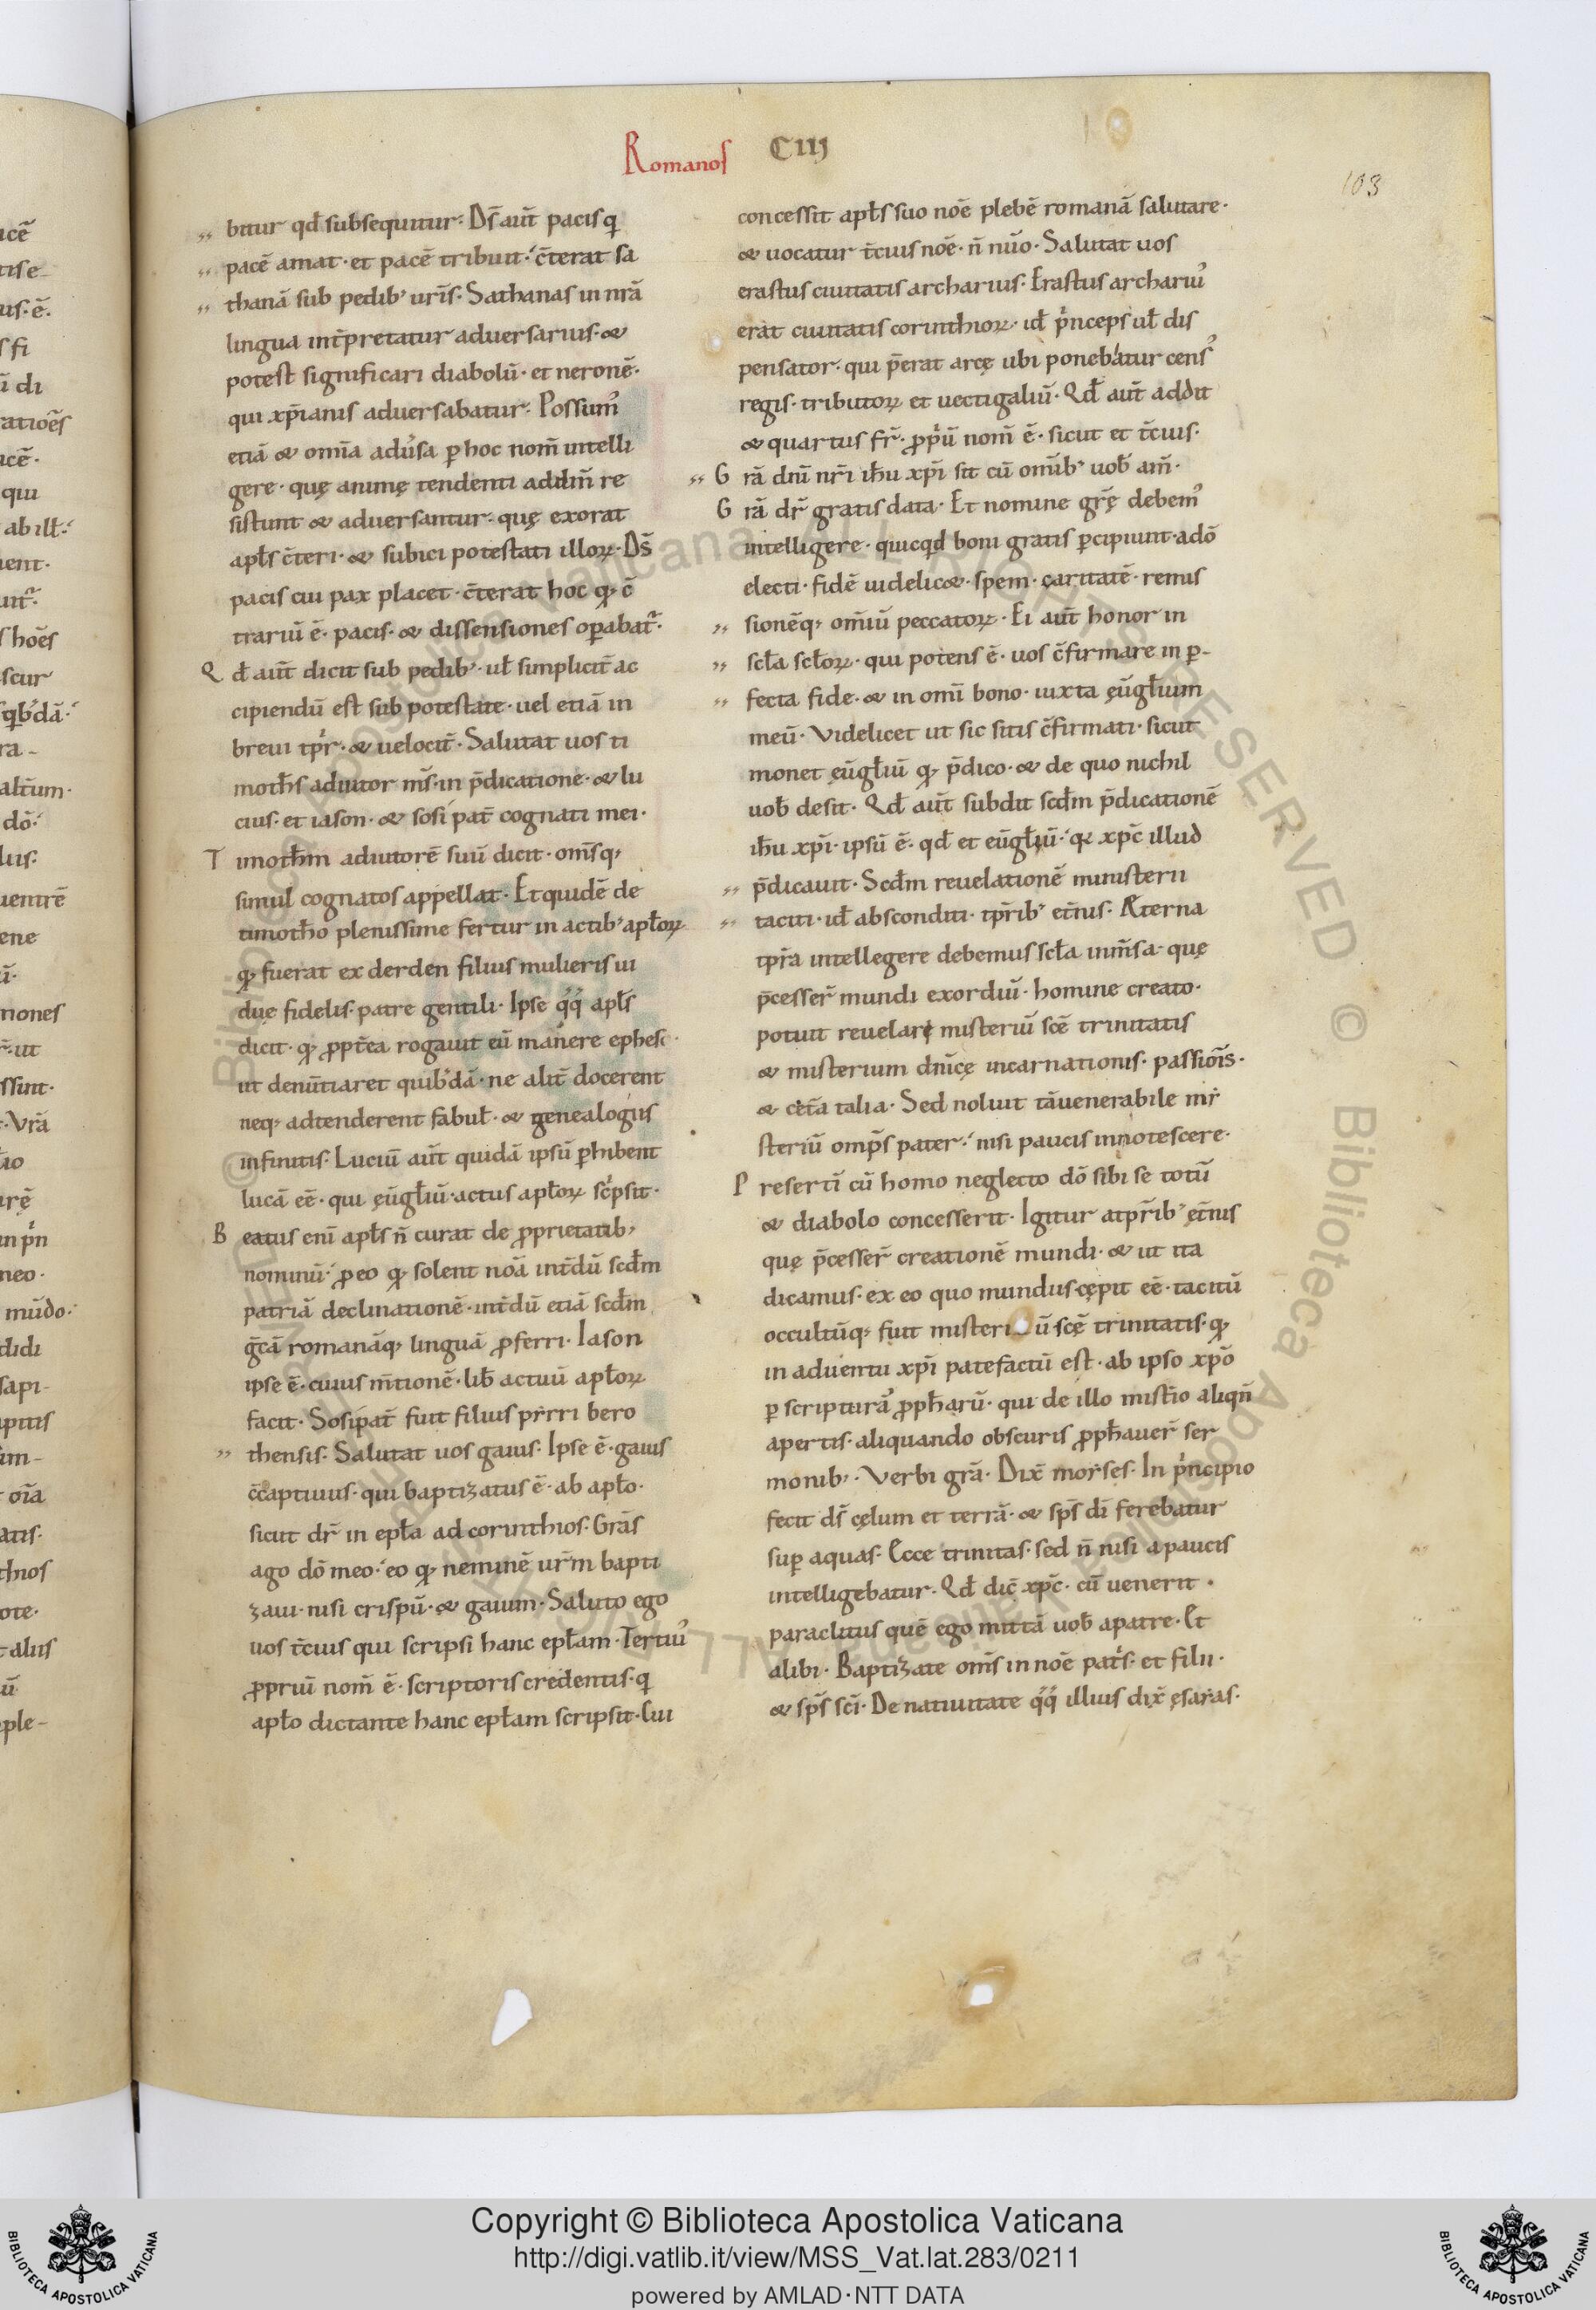 Romanos CIIJ
103
bitur qd̄ subsequitur· Ds̄ aūt pacis q̇
pacē amat· et pacē tribuit· c̄terat sa
thanā sub pedib’ ur̄is· Sathanas in nr̄ā
lingua int̄pretatur aduersarius· &
potest significari diabolū· et neronē·
qui xp̄ianis aduersabatur· Possum’
etiā & om̄ia adūsa p̱ hoc nom̄ intelli
gere· quę animę tendenti addm̄ re
sistunt & aduersantur· quę exorat
apl̄s c̄teri· & subici potestati illoꝝ· Ds̄
pacis cui pax placet· c̄terat hoc qꝫ c̄
trariū ē· pacis· & dissensiones op̱abat᷑·
Q d̄ aūt dicit sub pedib’· ul̄ simplicit̄ ac
cipiendū est sub potestate· uel etiā in
breui tp̄r· & uelocit̄· Salutat uos ti
moth̄s adiutor m̄s· in p̄dicatione· & lu
cius· et iason· & sosi pat̄ cognati mei·
T imoth̄m adiutorē suū dicit· om̄sqꝫ
simul cognatos appellat· Et quidē de
timoth̄o plenissime fertur in actib’ apl̄oꝝ
qꝫ fuerat ex derden filius mulieris ui
due fidelis· patre gentili· Ipse q̊q̊ apl̄s
dicit· qꝫ ꝓpt̄ea rogauit eū manere ephesi·
ut denūtiaret quib’dā· ne alit̄ docerent
neqꝫ adtenderent fabul̄· & genealogiis
infinitis· Luciū aūt quidā ipsū p̱hibent
lucā eē· qui ęūgl̄iū· actus apl̄oꝝ sc̍psit·
B eatus enī apl̄s n̄ curat de ꝓprietatibꝫ
nominū· ꝓ eo qꝫ solent nōā int̄dū scd̄m
patriā declinationē· int̄dū etiā scd̄m
gr̄cā romanāqꝫ linguā ꝓferri· Iason
ipse ē· cuius m̄tionē· lib̄ actuū apl̄oꝝ
facit· Sosipat̄ fuit filius pr̄rri bero
thensis· Salutat uos gaius· Ipse ē· gaius
c̄captiuus· qui baptizatus ē· ab apl̄o·
sicut dr̄ in epl̄a ad corinthios· Grās
ago dō meo· eo qꝫ neminē ur̄m bapti
zaui· nisi crispū· & gaium· Saluto ego
uos t̄cius qui scripsi hanc epl̄am· Tertiu’
ꝓpriū nom̄ ē· scriptoris credentis· q̇
apl̄o dictante hanc epl̄am scripsit· Cui
concessit apl̄s suo nōē plebē romanā salutare·
& uocatur t̄cius nōē· n̄ nūo· Salutat uos
erastus ciuitatis archarius· Erastus archariu’
erat ciuitatis corinthioꝝ· id̄ p̍nceps ul̄ dis
pensator· qui p̄erat arcę ubi ponebatur cens’
regis· tributoꝝ et uectigaliū· Qd̄ aūt addit
& quartus fr̄· ꝓp̍ū nom̄ ē· sicut et t̄cius·
G rā dnī nr̄i ih̄u xp̄i sit cū om̄ib’ uob̄ am̄·
G rā dr̄ gratis data· Et nomine gr̄ę debem’
intelligere· quicqd boni gratis p̱cipiunt· adō
electi· fidē uidelic&· spem· caritatē· remis
sionēqꝫ om̄iū peccatoꝝ· Ei aūt honor in
scl̄a scl̄oꝝ· qui potens ē· uos c̄firmare in p̱-
fecta fide· & in omī bono· iuxta ęūgl̄ium
meū· Videlicet ut sic sitis c̄firmati· sicut
monet ęūgl̄iū qꝫ p̄dico· & de quo nichil
uob̄ desit· Qd̄ aūt subdit scd̄m p̄dicationē
ih̄u xp̄i· ipsū ē· qd̄ et eūgl̄iū· q̨ xp̄c illud
p̄dicauit· Scd̄m reuelationē ministerii
taciti· id̄ absconditi· tp̄rib’ et̄nis· Æterna
tp̄ra intellegere debemus scl̄a inm̄sa· quę
p̄cesser̄ mundi exordiū· homine creato·
potuit reuelare misteriū scē trinitatis
& misterium dnīcę incarnationis· passiōis·
& cet̄a talia· Sed noluit tāuenerabile mi
steriū omp̄s pater· nisi paucis innotescere·
P resertī cū homo neglecto dō sibi se totū
& diabolo concesserit· Igitur atp̄rib’ ęt̄nis
quę p̄cesser̄ creationē mundi· & ut ita
dicamus· ex eo quo mundus cępit eē· tacitū
occultūqꝫ fuit misteri ū scę̄ trinitatis· qꝫ
in aduentu xp̄i patefactū est· ab ipso xp̄o
p̱ scripturā’ ꝓph̄arū· qui de illo mist̄io aliqn̄
apertis· aliquando obscuris ꝓph̄auer̄ ser
monibꝫ· Verbi grā· Dix̄ moyses· In p̍ncipio
fecit ds̄ cęlum et terrā· & sp̄s dī ferebatur
sup̱ aquas· Ecce trinitas· sed n̄ nisi apaucis
intelligebatur· Qd̄ dic̄ xp̄c· cū uenerit·
paraclitus quē ego mittā uob̄ apatre· Et
alibi· Baptizate om̄s in nōē pat̍s· et filii·
& sp̄s scī· De natiuitate q̊q̊ illius dix̄ ęsaias·
Copyright © Biblioteca Apostolica Vaticana
http://digi.vatlib.it/view/MSS_Vat.lat.283/0211
powered by AMLAD·NTT DATA